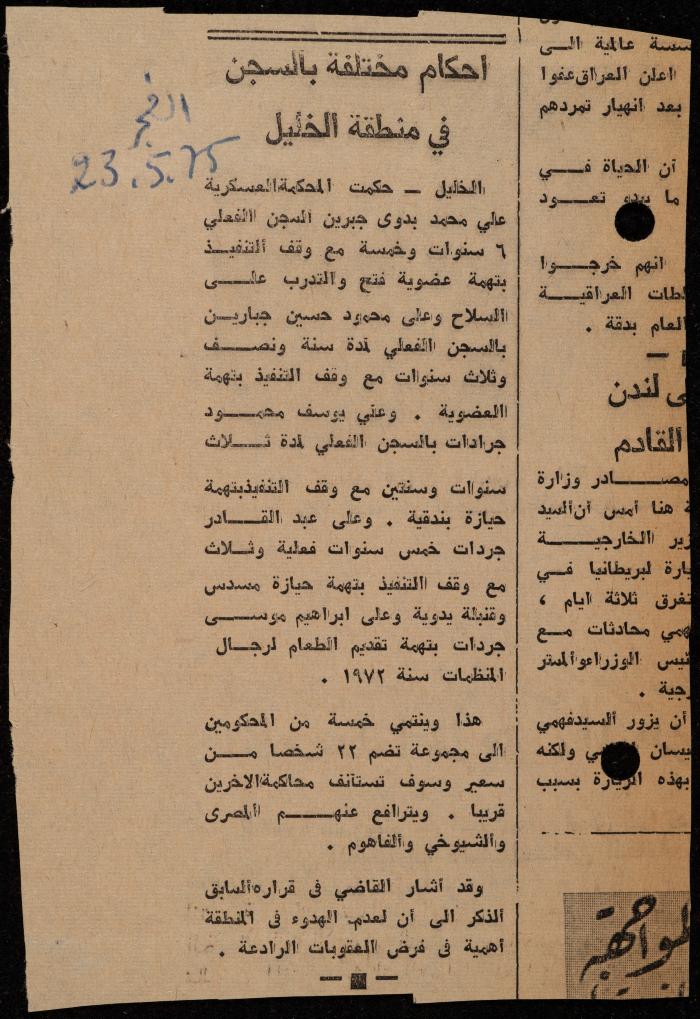 احكام مختلفة بالسجن
في منطقة الخليل
الفجر
23.5.75
الخليل ـ حكمت المحكمةالعسكرية
على محمد بدوى جبرين السجن الفعلي
٦ سنوات وخمسة مع وقف التنفيـذ
بتهمة عضوية فتح والتدرب علـى
السلاح وعلى محمود حسين جباريـن
بالسجن الفعلي لمدة سنة ونصـف
وثلاث سنوات مع وقف التنفيذ بتهمة
العضوية . وعلي يوسف محمـود
جرادات بالسجن الفعلي لمدة ثـلاث
سنوات وسنتين مع وقف التنفيذبتهمة
حيازة بندقية . وعلى عبد القـادر
جردات خمس سنوات فعلية وثـلاث
مع وقف التنفيذ بتهمة حيازة مسدس
وقنبلة يدوية وعلى ابراهيم موسـى
جردات بتهمة تقديم الطعام لرجـال
المنظمات سنة ١٩٧٢ .
هذا وينتمي خمسة من المحكومين
الى مجموعة تضم ٢٢ شخصا مـن
سعير وسوف تستأنف محاكمةالاخرين
قريبا . ويترافع عنهـم المصرى
والشيوخي والفاهوم .
وقد أشار القاضي فى قرارهالسابق
الذكر الى أن لعدم الهدوء فى المنطقة
أهمية فى فرض العقوبات الرادعة .
سسة عالمية الـى
اعلن العراق عفوا
بعد انهيار تمردهم
أن الحياة فـي
ما يبدو تعـود
انهم خرجـوا
العراقيـة
العام بدقة .
لندن
القادم
وزارة
هنا أمس أنالسيد
الخارجيـة
لبريطانيا فـي
ثلاثة ايام ،
محادثات مـع
الوزراءوالمستر
أن يزور السيدفهمي
ولكنه
بهذه الزيارة بسبب